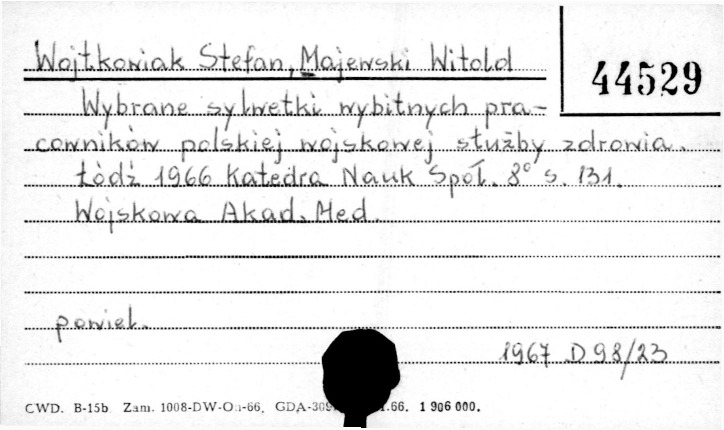 Wojtkowiak Stefan, Majewski Witold
44529
Wybrane sylwetki wybitnych pra-
cowników polskiej wojskowej służby zdrowia.
Łódź 1966 Katedra Nauk Społ. 8° s. 131.
Wojskowa Akad. Med.
powiel.
1967 D 98/23
CWD. B-15b. Zam. 1008-DW-On-66, GDA-369 .66. 1 906 000.